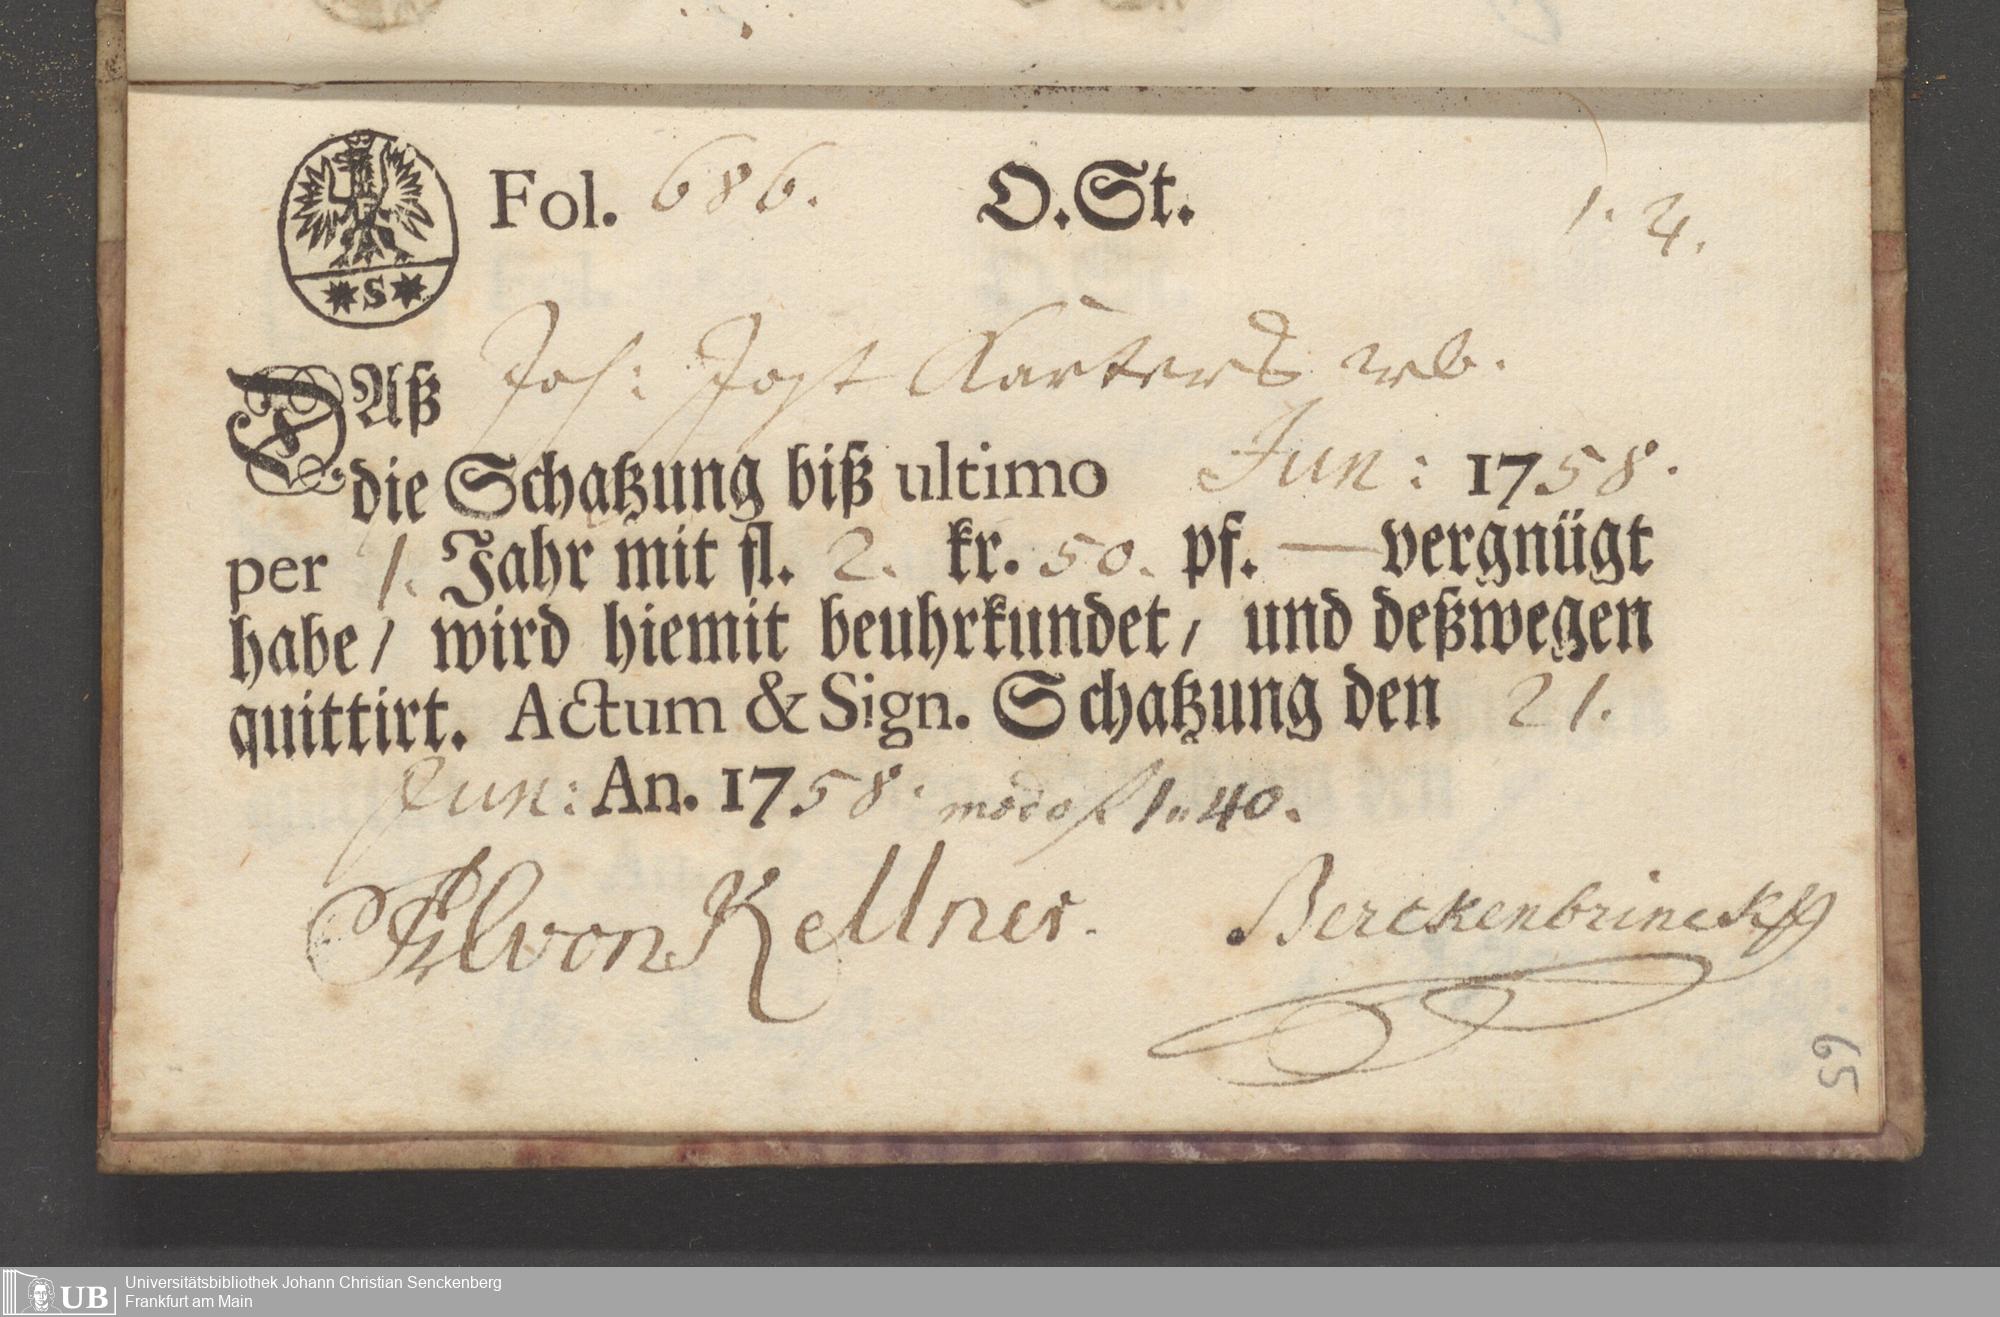 Fol. 686. O.St. 1. 4.
*S*
DAß Joh: Jost Karters wb.
die Schatzung biß ultimo Jun: 1758.
per 1. Jahr mit fl. 2. kr. 50. pf. — vergnügt
habe/ wird hiemit beuhrkundet/ und deßwegen
quittirt. Actum & Sign. Schatzung den 21.
Jun: An. 1758. modo f 1„40.
von Kellner. Berckenbrinck
65
UB Universitätsbibliothek Johann Christian Senckenberg
Frankfurt am Main